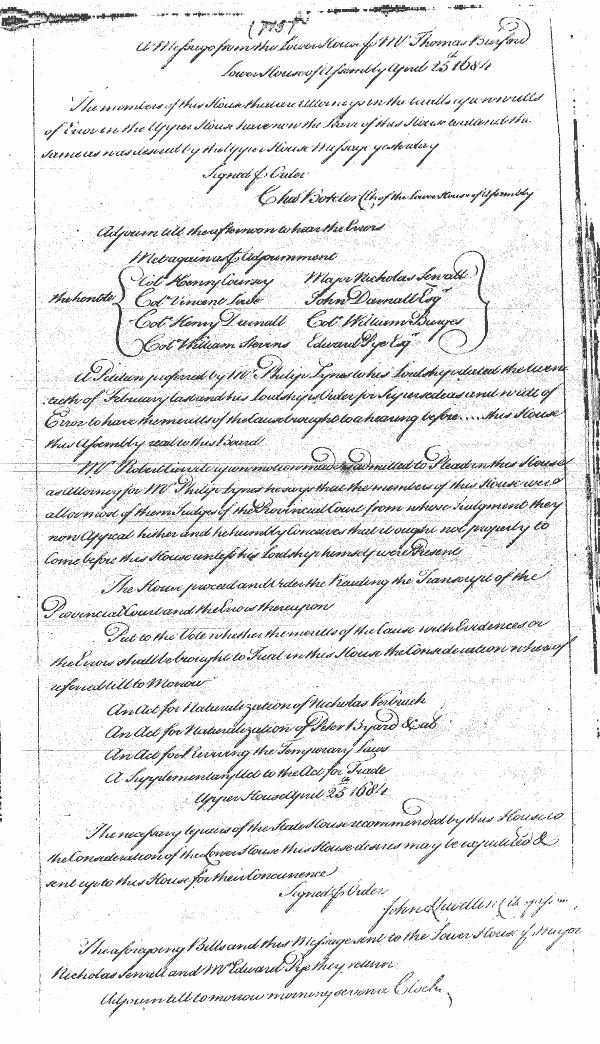 A Message from the Lower House p Mr Thomas Burford
Lower House of Assembly April 25th 1684
The members of this House that are Attorneys in the writts
of Error in the Upper House have now the leave of this House to attend the
same as was desired by the Upper House Message yesterday
Signed p Order
Chas Boteler Clk of the Lower House of Assembly
Adjourn till the afternoon to hear the Errors
Met again as p Adjournment
the honble
Colo Henry Coursey Major Nicholas Sewall
Colo Vincent Lowe John Darnall Esqr
Colo Henry Darnall Colo William Burges
Colo William Stevens Edward Pye Esqr
A Petition preferred by Mr Philip Lynes to his Lordship dated the twen
tieth of February last and his Lordships Order for Supersedeas and writt of
Error to have the meritts of the Cause brought to a hearing before.....this House
this Assembly read to this Board
Mr Robert upon motion made admitted to Plead in this House
as Attorney for Mr Philip Lynes he says that the members of this House were
all or most of them Judges of the Provincial Court from whose Judgment they
now Appeal hither and he humbly Conceives that it ought not properly to
Come before this House unless his Lordship himself were Present
The House proceed and Order the Reading the Transcript of the
Provincial Court and the Errors thereupon
Put to the Vote whether the meritts of the Cause with Evidences or
the Errors shall be brought to Trial in this House the Consideration whereof
referred till to Morrow
An Act for Naturalization of Nicholas Verbrack
An Act for Naturalization of Peter Byard & als
An Act for Reviving the Temporary Laws
A Supplementary Act to the Act for Trade
Upper House April 25th 1684
The necessary repairs of the State House recommended by this House to
the Consideration of the Lower House this House desires may be expedited &
sent up to this House for their Concurrence
Signed p Order
John Llewellin
The aforegoing Bills and this Message sent to the Lower House p Major
Nicholas Sewall and Mr Edward Pye they return
Adjourn till tomorrow morning seven a Clock